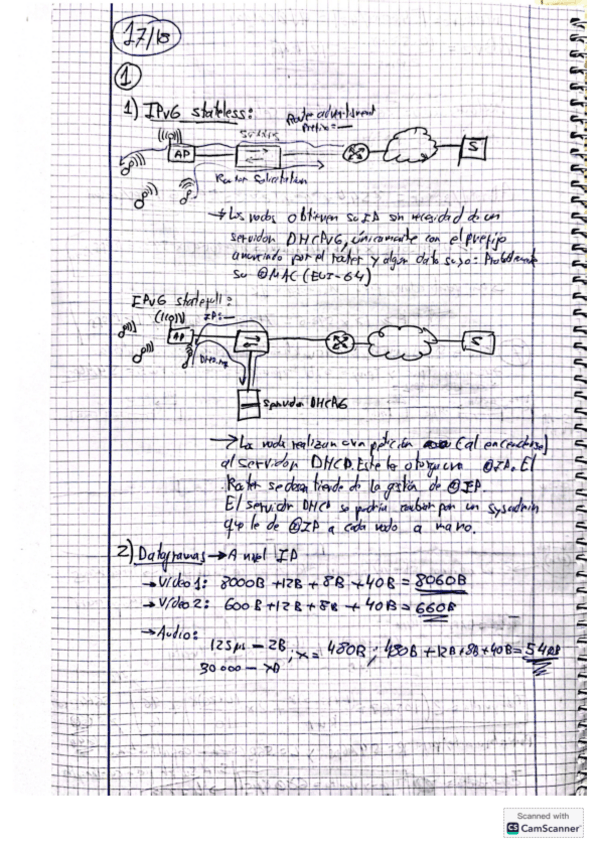 17/18
1
1) IPv6 stateless:
Router advertisment
Prefix = —
((( ))) Switch
AP
S
Router Solicitation
→ Los nodos obtienen su IP sin necesidad de un
servidor DHCPv6, únicamente con el prefijo
anunciado por el router y algún dato suyo: Probablemente
su @MAC (EUI-64)
IPv6 statefull:
IP: —
AP
S
Servidor DHCPv6
→ Los nodos realizan una petición (al encenderse)
al servidor DHCP. Este le otorga una @IP. El
Router se desentiende de la gestión de @IP.
El servidor DHCP se podría cambiar por un sysadmin
que le de @IP a cada nodo a mano.
2) Datagramas → A nivel IP
→ Video 1: 8000B + 12B + 8B + 40B = 8060B
→ Video 2: 600B + 12B + 8B + 40B = 660B
→ Audio:
125µs — 2B ; x = 480B ; 480B + 12B + 8B + 40B = 540B
30 000 — xB
Scanned with
CS CamScanner